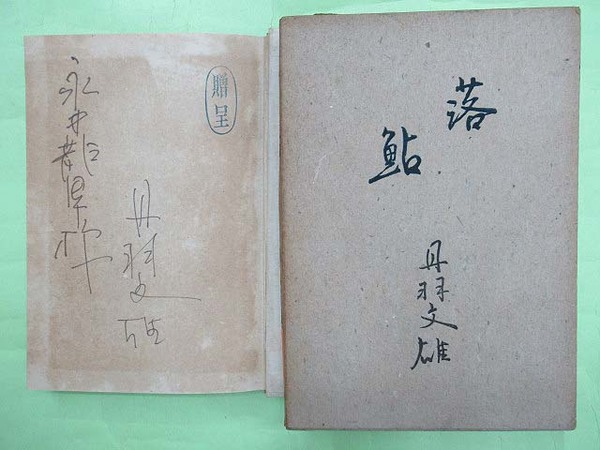 落鮎
丹羽文雄
贈呈
永井龍男様
丹羽文雄